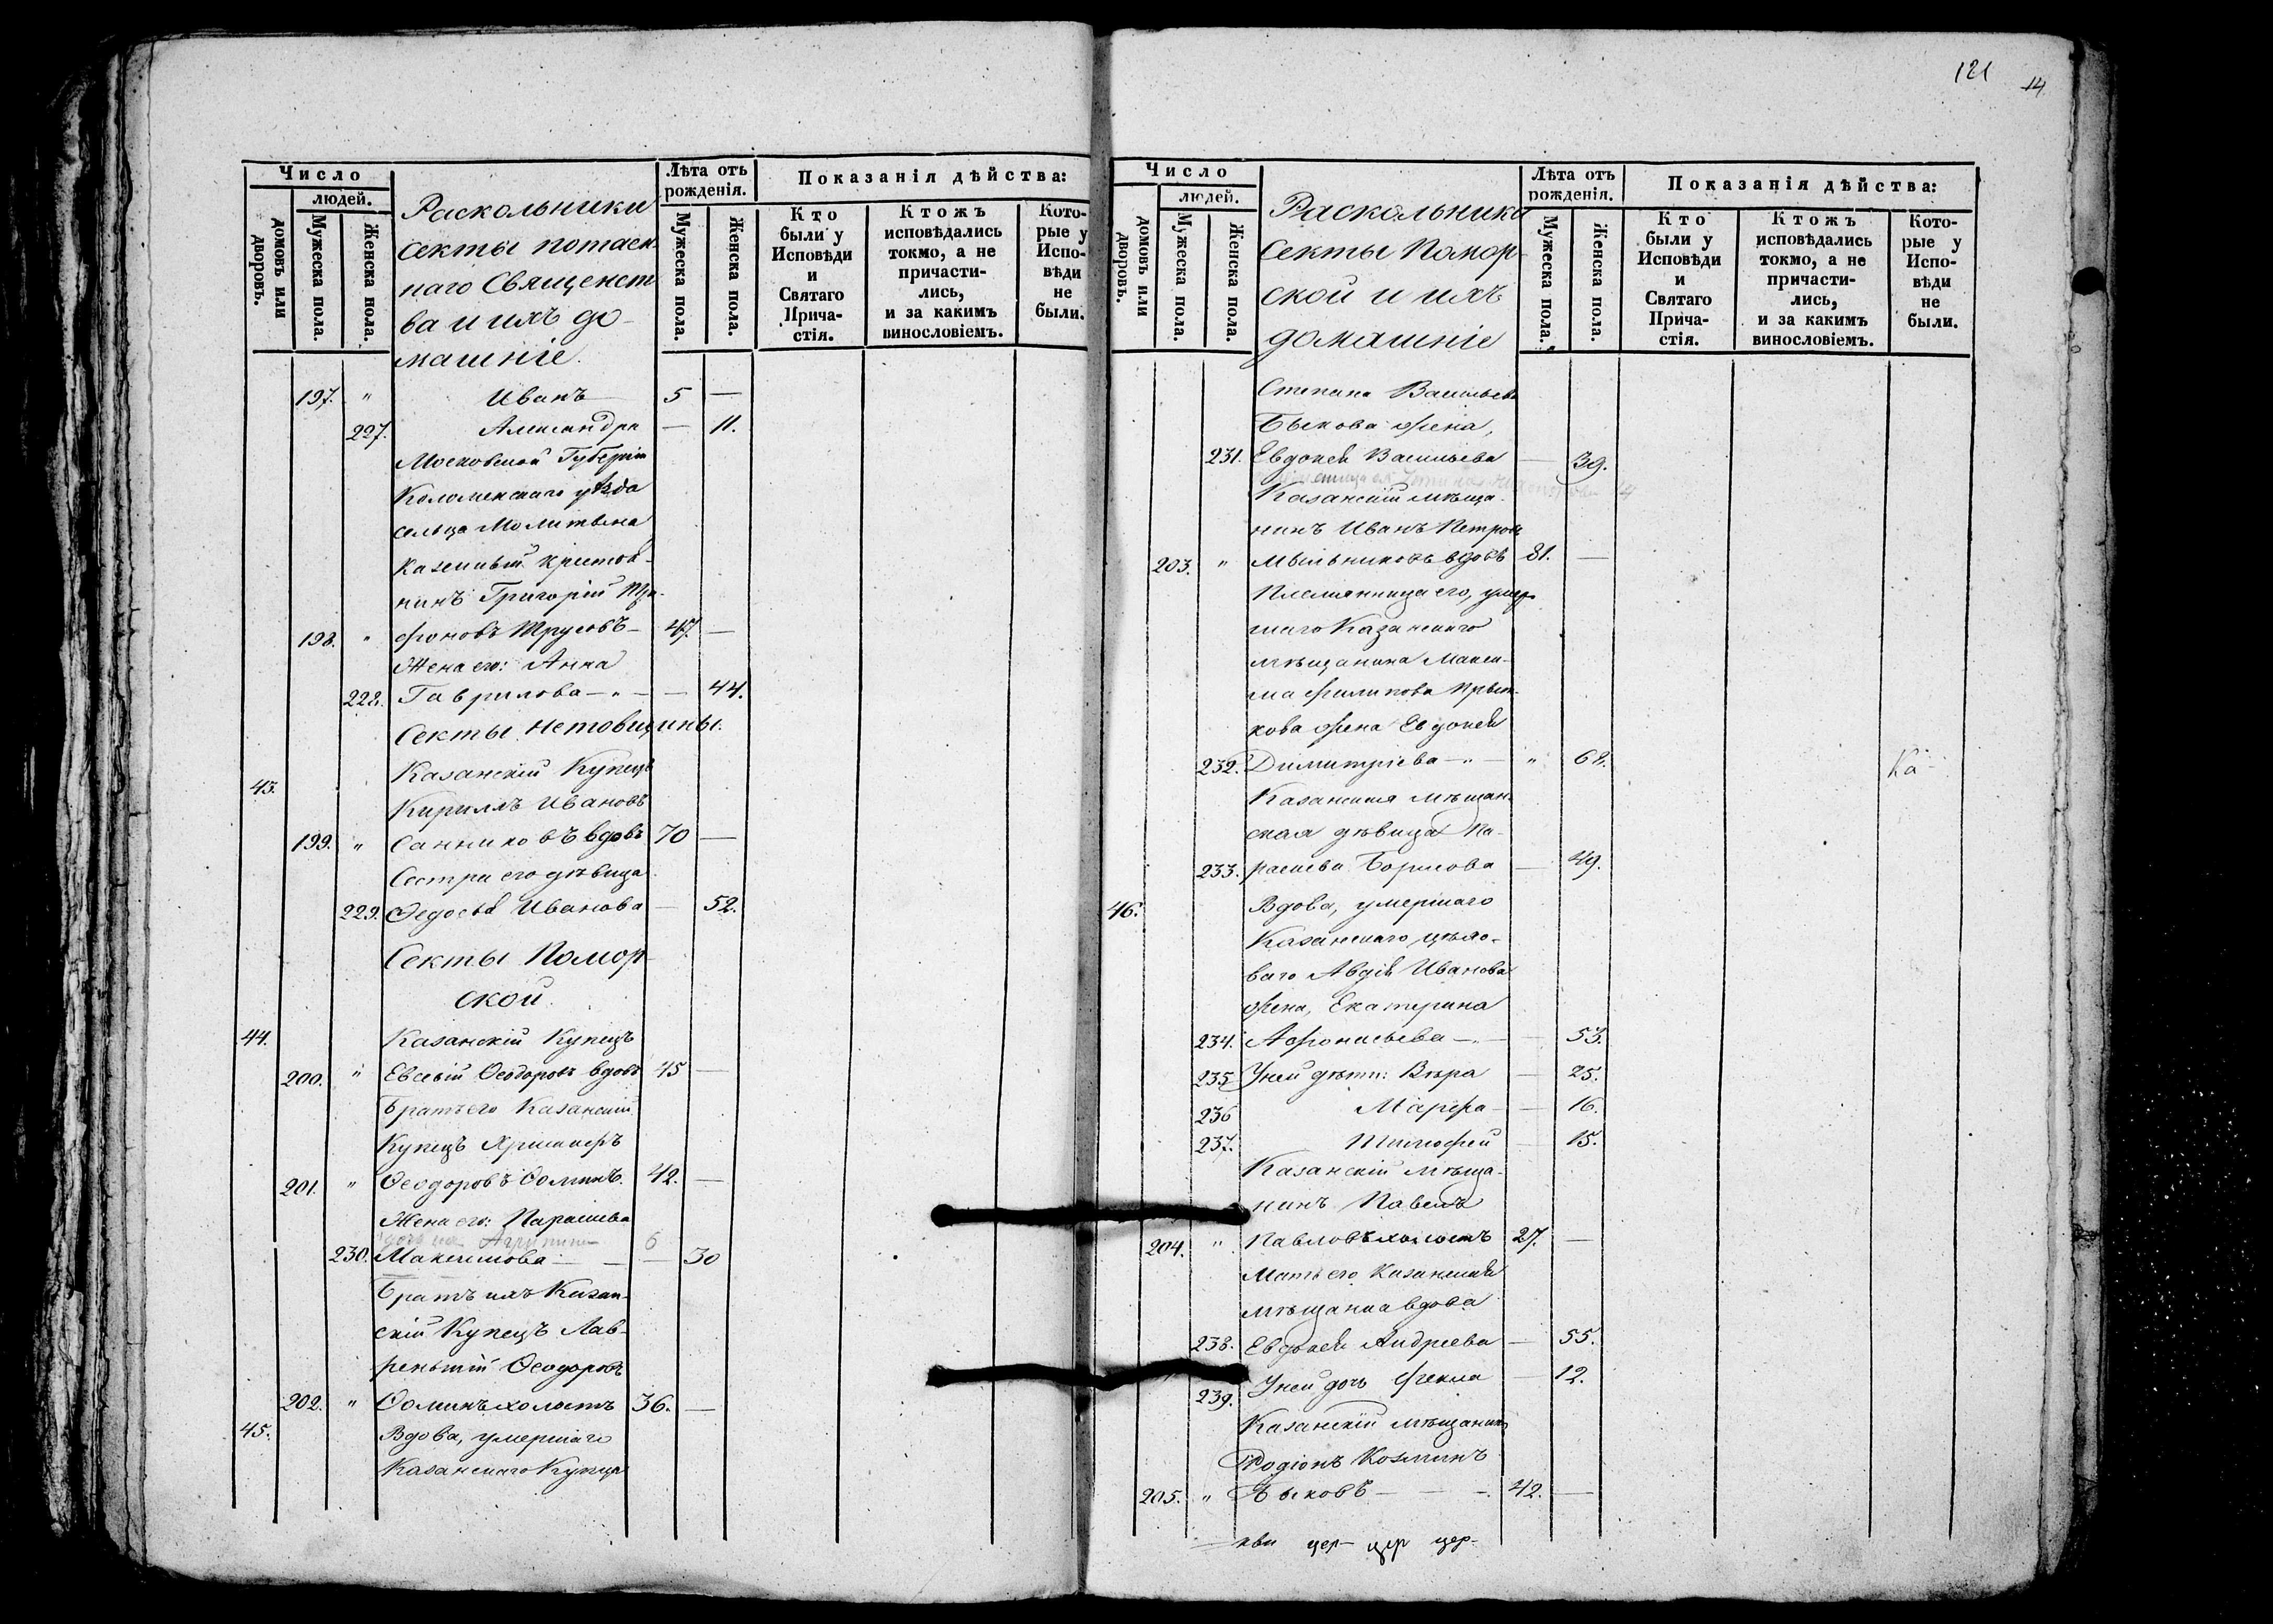 Число
людей.
домовъ или дворовъ.
Мужеска пола.
Женска пола.
Раскольники
секты потаен-
наго Священст
ва и ихъ до-
машніе.
Лѣта отъ рожденія.
Мужеска пола.
Женска пола.
Показанія дѣйства:
Кто были у Исповѣди и Святаго Прича-стія.
Ктожъ исповѣдались токмо, а не причасти-лись, и за какимъ винословіемъ.
Кото-рые у Испо-вѣди не были.
197. " Иванъ 5 —
227. Александра — 11.
Московской Губерніи
Коломенскаго уѣзда
сельца Молитвена
казенный крестья-
нинъ Григорій
198. " Трусовъ — 47. —
Жена его: Анна
228. Гаврилова — " — — 44.
Секты Нетовщины.
43. Казанскій Купецъ
Кириллъ Ивановъ
199. " Санниковъ вдовъ 70 —
Сестра его дѣвица
229. Ѳедосья Иванова — 52.
Секты Помор-
ской.
44. Казанскій Купецъ
200. " Евсевій Ѳеодоровъ вдовъ 45 —
Братъ его Казанскій
Купецъ
201. " Ѳеодоровъ Ѳоминъ. 42. —
Жена его: Параскева
дочь их Агрипина 6
230. Максимова — — — 30
Братъ ихъ Казан-
скій Купецъ Лав-
рентій Ѳеодоровъ
202. " Ѳоминъ холостъ 36. —
45. Вдова, умершаго
Казанскаго Купца
121 14
Число
людей.
домовъ или дворовъ.
Мужеска пола.
Женска пола.
Раскольники
секты Помор-
ской и ихъ
домашніе
Лѣта отъ рожденія.
Мужеска пола.
Женска пола.
Показанія дѣйства:
Кто были у Исповѣди и Святаго Прича-стія.
Ктожъ исповѣдались токмо, а не причасти-лись, и за какимъ винословіемъ.
Кото-рые у Испо-вѣди не были.
Степана Васильева
Быкова жена,
231. Евдокея Васильева — 39.
Казанскій мѣща-
нинъ Иванъ Петровъ
203. " Мыльниковъ вдовъ 81. —
Племянница его, умер-
шаго Казанскаго
мѣщанина Макси-
ма Филипова
кова жена Евдокея
232. Димитріева — " — " 68. Ка-
Казанская мѣщан-
ская дѣвица Па-
233. раскева Борисова — 49.
46. Вдова, умершаго
Казанскаго цѣхо-
ваго Авдѣя Иванова
жена, Екатерина
234. Афонасьева — " — — 53.
235. У ней дѣти: Вѣра — 25.
236 Марѳа — — 16.
237. Тимофей — 15.
Казанскій мѣща-
нинъ Павелъ
204. " Павловъ холостъ 27. —
Мать его Казанская
мѣщанка вдова
238. Евдокея Андреева — 55.
239. У ней дочь Фекла — 12.
Казанскій мѣщанинъ
Родіонъ Козминъ
205. " Быковъ — — —. 42. —
— кви цер- цер цер-